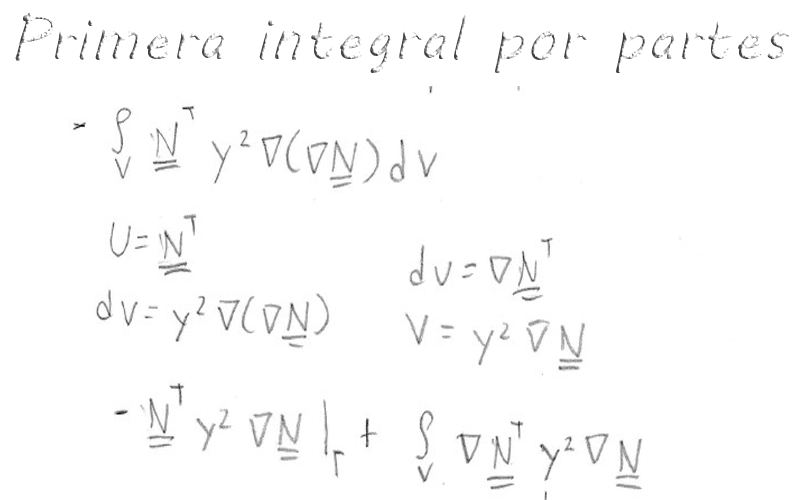 Primera integral por partes
- ∫_V N̳^T y² ∇(∇N̳) dV
U = N̳^T
du = ∇N̳^T
dv = y² ∇(∇N̳)
V = y² ∇N̳
- N̳^T y² ∇N̳ |_Γ + ∫_V ∇N̳^T y² ∇N̳